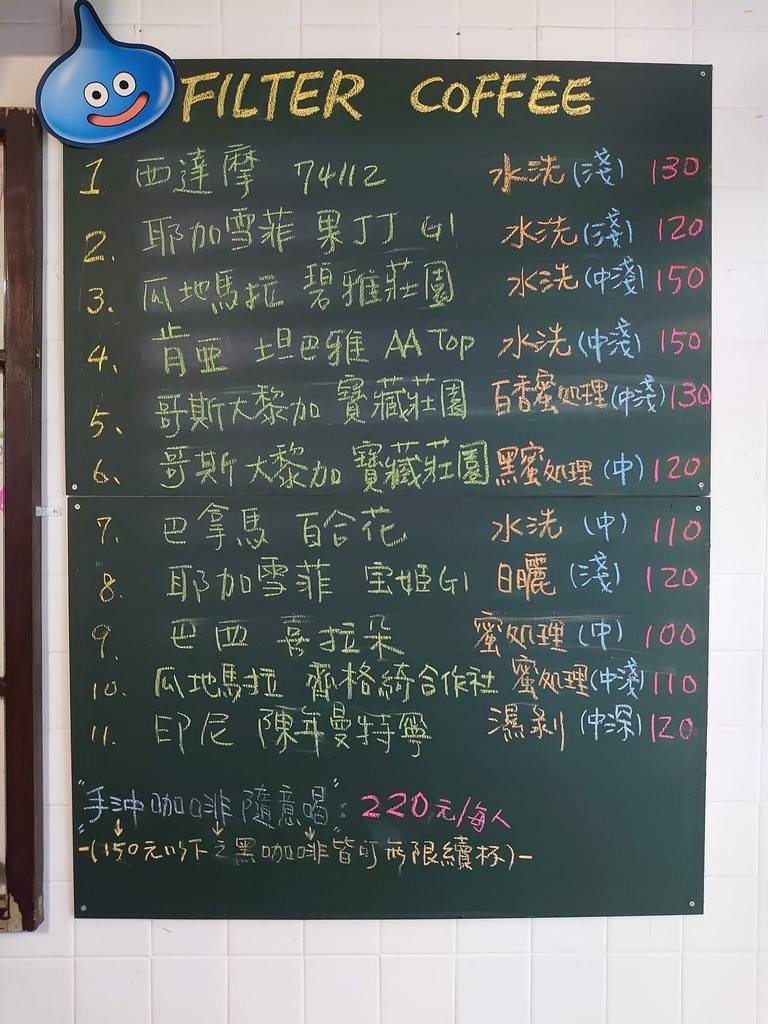 FILTER COFFEE
1 西達摩 74112 水洗(淺) 130
2. 耶加雪菲 果丁丁 G1 水洗(淺) 120
3. 瓜地馬拉 碧雅莊園 水洗(中淺) 150
4. 肯亞 坦巴雅 AA Top 水洗(中淺) 150
5. 哥斯大黎加 寶藏莊園 百香蜜処理(中淺) 130
6. 哥斯大黎加 寶藏莊園 黑蜜処理(中) 120
7. 巴拿馬 百合花 水洗(中) 110
8. 耶加雪菲 宝姫G1 日曬(淺) 120
9. 巴西 喜拉朵 蜜処理(中) 100
10. 瓜地馬拉 薇格綺合作社 蜜処理(中淺) 110
11. 印尼 陳年曼特寧 濕剝(中深) 120
"手沖咖啡隨意喝": 220元/每人
-(150元以下之黑咖啡皆可無限續杯)-